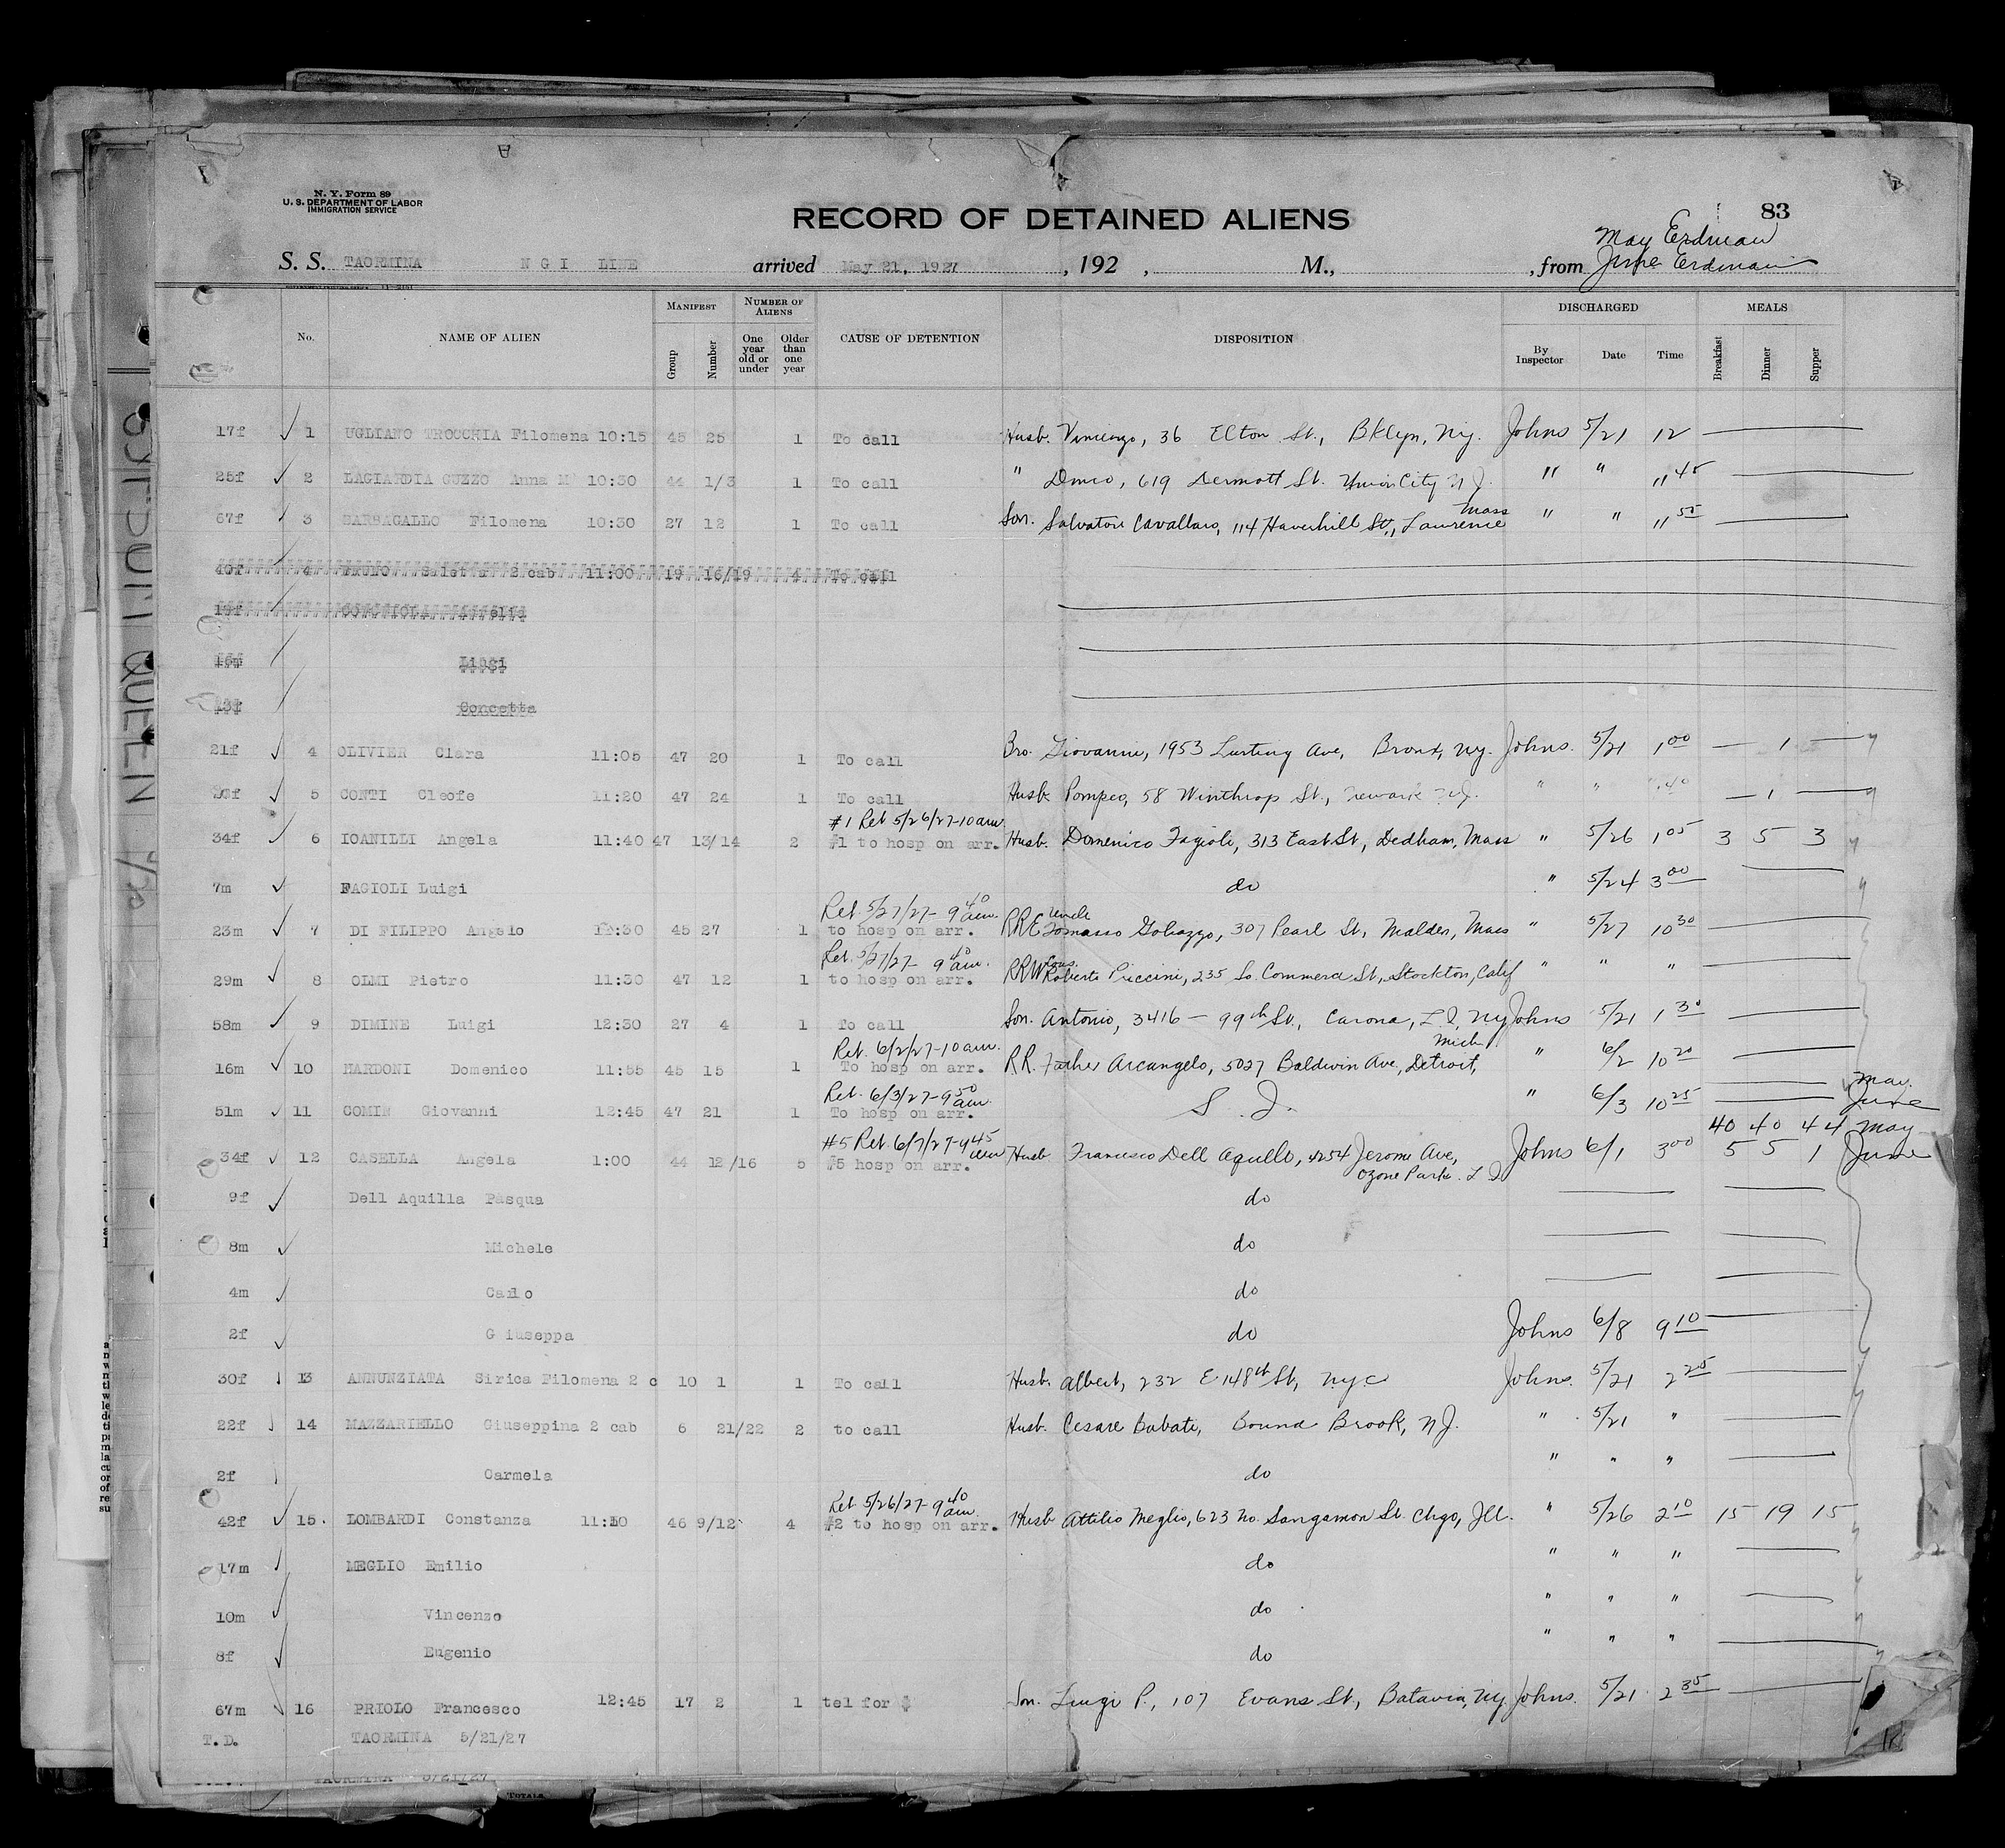 N. Y. Form 89
U. S. DEPARTMENT OF LABOR
IMMIGRATION SERVICE
RECORD OF DETAINED ALIENS
83
May Erdman
S. S. TAORMINA N G I LINE arrived May 21, 1927 , 192 , M., , from June Erdman
No. NAME OF ALIEN MANIFEST Group Number NUMBER OF ALIENS One year old or under Older than one year CAUSE OF DETENTION DISPOSITION DISCHARGED By Inspector Date Time MEALS Breakfast Dinner Supper
17f 1 UGLIANO TROCCHIA Filomena 10:15 45 25 1 To call Husb. Vincenzo, 36 Elton St., Bklyn, Ny. Johns 5/21 12
25f 2 LAGIARDIA GUZZO Anna M 10:30 44 1/3 1 To call " 619 Dermott St. Union City N J. " " " 45
67f 3 BARBAGALLO Filomena 10:30 27 12 1 To call Son. Salvatore Cavallaro, 114 Haverhill St., Lawrence Mass " " " 55
40f 4 2 cab 11:00 19 16/19 4 To call
19f
16m Luigi
13f Concetta
21f 4 OLIVIER Clara 11:05 47 20 1 To call Bro. Giovanni, 1953 Ave, Bronx, Ny. Johns. 5/21 1 00 1
5 CONTI Cleofe 11:20 47 24 1 To call Husb. Pompeo, 58 Winthrop St., Newark N J. " " 40 1
#1 Ret 5/26/27-10am
34f 6 IOANILLI Angela 11:40 47 13/14 2 #1 to hosp on arr. Husb. Domenico Fagioli, 313 East St, Dedham, Mass " 5/26 1 05 3 5 3
7m FAGIOLI Luigi do " 5/24 3 00
Ret. 5/27/27- 9 40 am.
23m 7 DI FILIPPO Angelo 12:30 45 27 1 to hosp on arr. RRE Uncle Tomasso 307 Pearl St, Malden, Mass " 5/27 10 30
Ret. 5/27/27- 9 40 am.
29m 8 OLMI Pietro 11:30 47 12 1 to hosp on arr. RRW Cous. Roberto Puccini, 235 So. Commerce St., Stockton, Calif " " "
58m 9 DIMINE Luigi 12:30 27 4 1 To call Son. Antonio, 3416 - 99th St., Carona, L. I, Ny Johns 5/21 1 30
Ret. 6/2/27-10am.
16m 10 HARDONI Domenico 11:55 45 15 1 To hosp on arr. RR. Father Arcangelo, 5027 Baldwin Ave, Detroit, Mich " 6/2 10 20
Ret. 6/3/27-9 50 am. May.
51m 11 COMIN Giovanni 12:45 47 21 1 To hosp on arr. S. I. " 6/3 10 25 June
#5 Ret 6/7/27-9 45 am 40 40 44 May
34f 12 CASELLA Angela 1:00 44 12/16 5 #5 hosp on arr. Husb Francesco Dell Aquilla, 4254 Jerome Ave, Ozone Park. L I Johns 6/1 3 00 5 5 1 June
9f Dell Aquilla Pasqua do
8m Michele do
4m Carlo do
2f Giuseppa do Johns 6/8 9 10
30f 13 ANNUNZIATA Sirica Filomena 2 c 10 1 1 To call Husb. Albert, 232 E. 148th St, nyc Johns. 5/21 2 25
22f 14 MAZZARIELLO Giuseppina 2 cab 6 21/22 2 to call Husb. Cesare Bound Brook, N J. " 5/21 "
2f Carmela do " " "
Ret. 5/26/27-9 40 am.
42f 15. LOMBARDI Constanza 11:10 46 9/12 4 #2 to hosp on arr. Husb Attilio Meglio, 623 No. Sangamon St. Chgo, Ill. " 5/26 2 10 15 19 15
17m MEGLIO Emilio do " " "
10m Vincenzo do " " "
8f Eugenio do " " "
67m 16 PRIOLO Francesco 12:45 17 2 1 tel for $ Son. Luigi P., 107 Evans St, Batavia, Ny Johns. 5/21 2 35
T.D. TAORMINA 5/21/27
TAORMINA 5/21/27
TOTALS